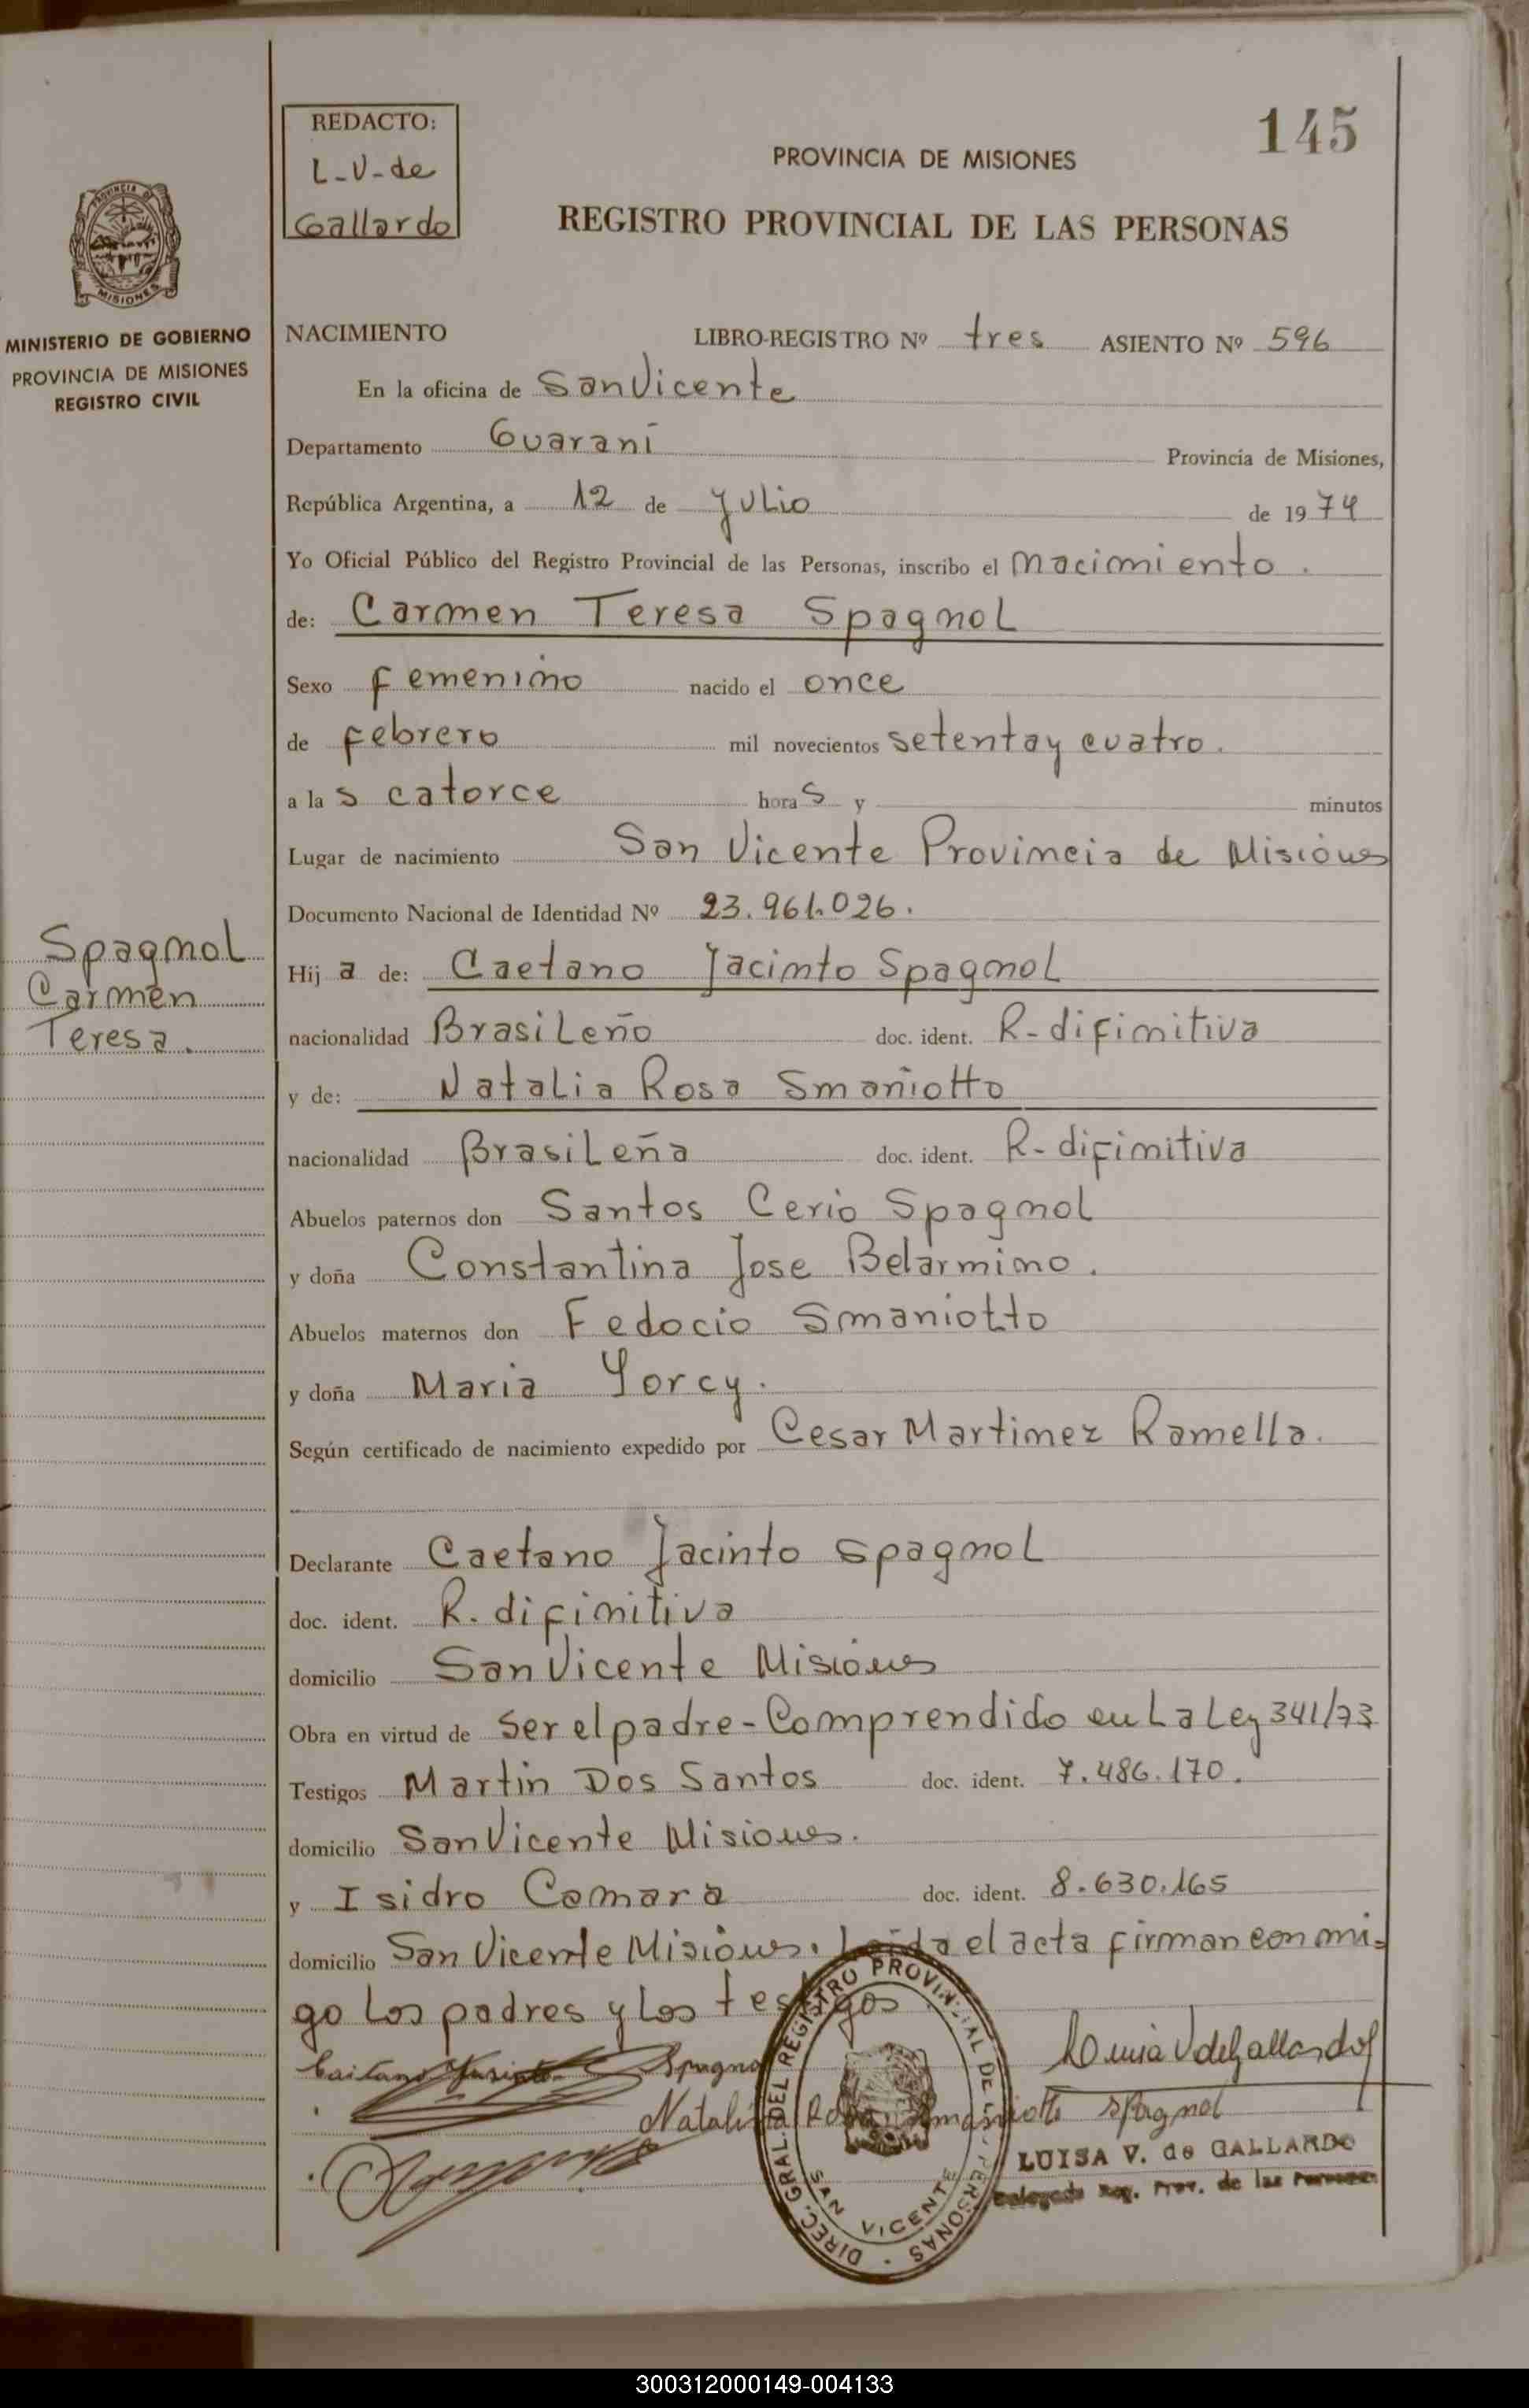 145
REDACTO:
L-V-de
Gallardo
PROVINCIA DE MISIONES
REGISTRO PROVINCIAL DE LAS PERSONAS
PROVINCIA DE
MISIONES
MINISTERIO DE GOBIERNO
PROVINCIA DE MISIONES
REGISTRO CIVIL
NACIMIENTO LIBRO-REGISTRO Nº tres ASIENTO Nº 596
En la oficina de San Vicente
Departamento Guaraní Provincia de Misiones,
República Argentina, a 12 de Julio de 1974
Yo Oficial Público del Registro Provincial de las Personas, inscribo el nacimiento.
de: Carmen Teresa Spagnol
Sexo femenino nacido el once
de febrero mil novecientos setenta y cuatro.
a las catorce horas y minutos
Lugar de nacimiento San Vicente Provincia de Misiones
Documento Nacional de Identidad Nº 23.961.026.
Spagnol
Carmen
Teresa.
Hija de: Caetano Jacinto Spagnol
nacionalidad Brasileño doc. ident. R-difinitiva
y de: Natalia Rosa Smaniotto
nacionalidad Brasileña doc. ident. R-difinitiva
Abuelos paternos don Santos Cerio Spagnol
y doña Constantina Jose Belarmino.
Abuelos maternos don Fedocio Smaniotto
y doña Maria Yorcy.
Según certificado de nacimiento expedido por Cesar Martinez Ramella.
Declarante Caetano Jacinto Spagnol
doc. ident. R. difinitiva
domicilio San Vicente Misiones
Obra en virtud de ser el padre-Comprendido en La Ley 341/73
Testigos Martin Dos Santos doc. ident. 7.486.170.
domicilio San Vicente Misiones.
y Isidro Camara doc. ident. 8.630.165
domicilio San Vicente Misiones. Leída el acta firman con mi-
go los padres y los testigos
Spagnol
Luisa V de Gallardo
Natalia Rosa Smaniotto Spagnol
DIREC. GRAL. DEL REGISTRO PROVINCIAL DE LAS PERSONAS
SAN VICENTE
LUISA V. de GALLARDO
Delegada Reg. Prov. de las Personas
300312000149-004133